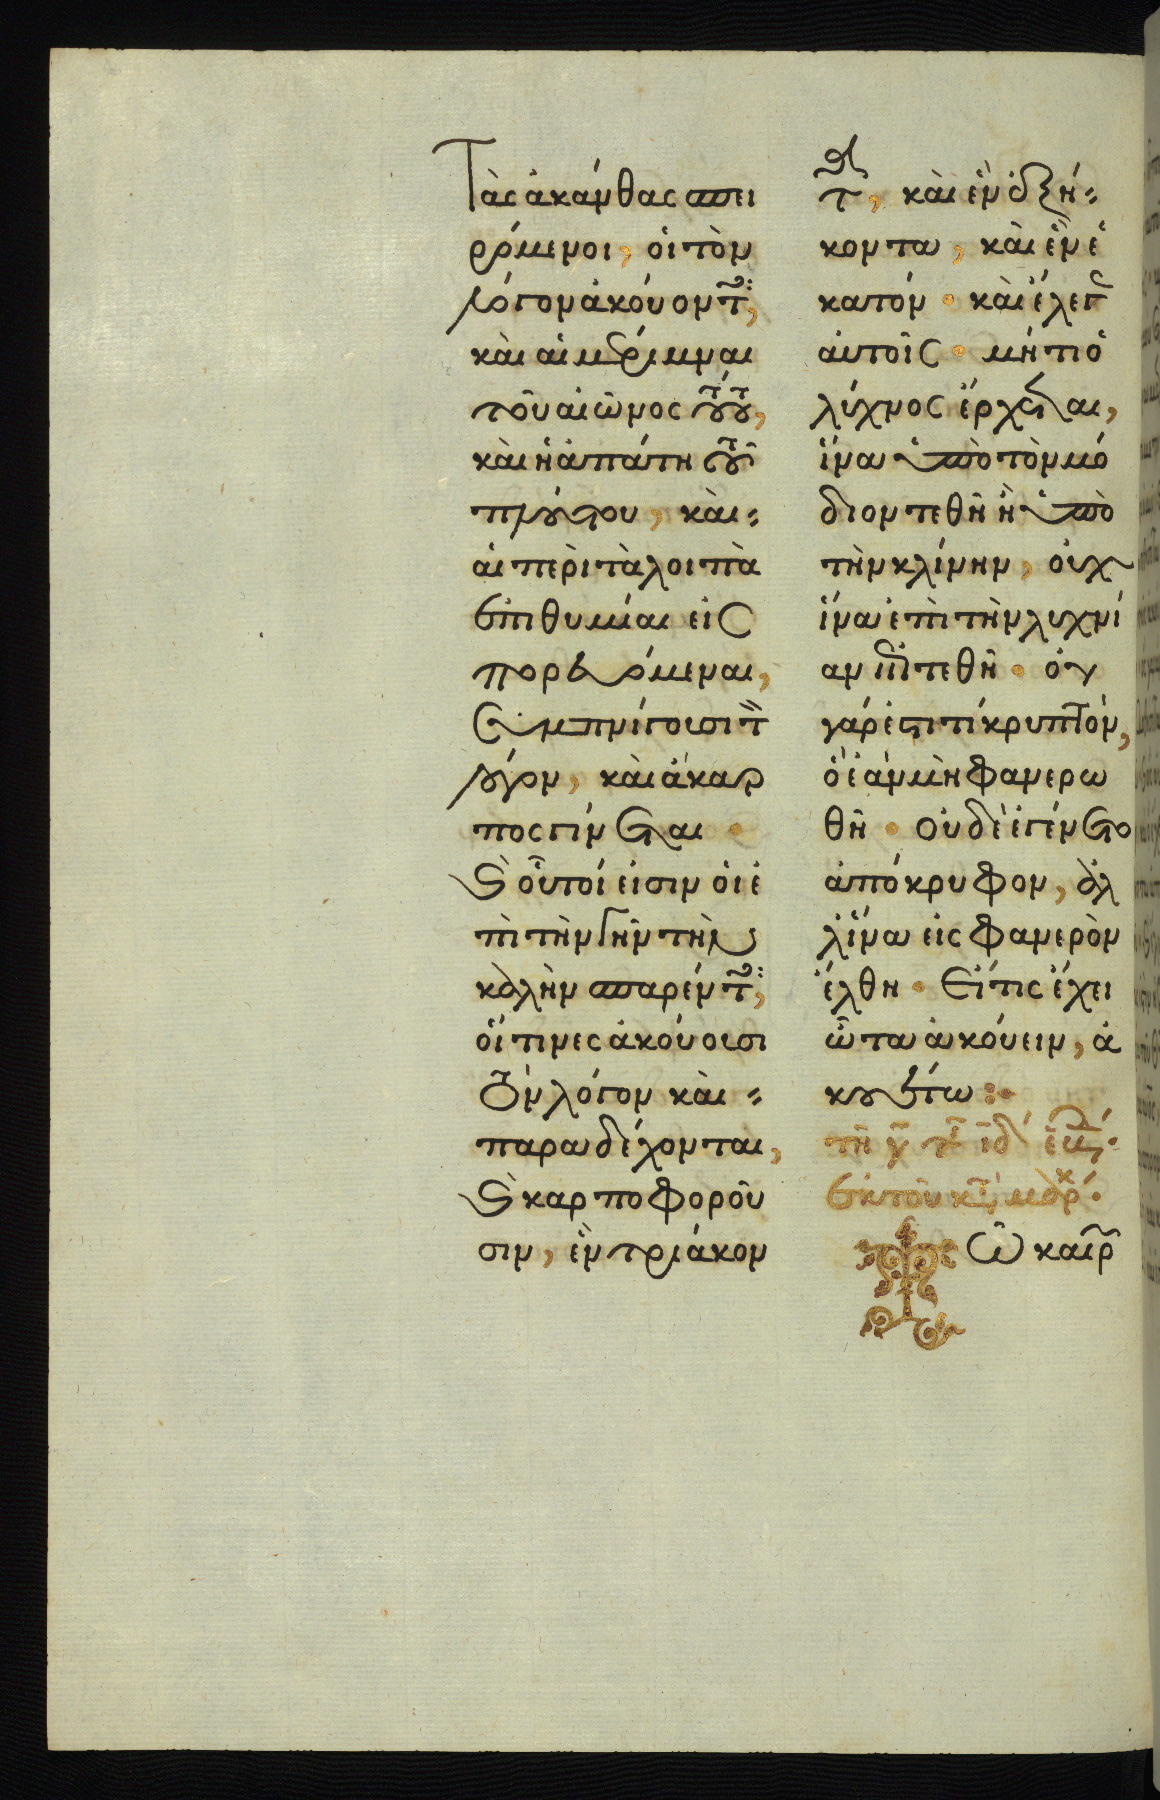 Τὰς ἀκάνθας σπει
ρόμενοι, οἱ τὸν
λόγον ἀκούοντ,
καὶ αἱ μέριμναι
τοῦ αἰῶνος τούτου,
καὶ ἡ ἀπάτη τοῦ
πλούτου, καὶ
αἱ περὶ τὰ λοιπὰ
ἐπιθυμίαι εἰσ
πορευόμεναι,
συμπνίγουσι τ
λόγον, καὶ ἄκαρ
πος γίνεται.
καὶ οὗτοί εἰσιν οἱ ἐ
πὶ τὴν γῆν τὴν
καλὴν σπαρέντ,
οἵτινες ἀκούουσι
τὸν λόγον καὶ
παραδέχονται,
καὶ καρποφοροῦ
σιν, ἐν τριάκον
τ, καὶ ἐν ἑξή
κοντα, καὶ ἐν ἑ
κατόν. καὶ ἔλεγ
αὐτοῖς. μήτι ὁ
λύχνος ἔρχεται,
ἵνα ὑπὸ τὸν μό
διον τεθῇ ἢ ὑπὸ
τὴν κλίνην, οὐχ
ἵνα ἐπὶ τὴν λυχνί
αν ἐπιτεθῇ. οὐ
γάρ ἐστι τί κρυπτὸν,
ὃ ἐὰν μὴ φανερω
θῇ. οὐδὲ ἐγένετο
ἀπόκρυφον, ἀλ
λ ἵνα εἰς φανερὸν
ἔλθῃ. Εἴ τις ἔχει
ὦτα ἀκούειν, ἀ
κουέτω:
τῇ γ τ ιδ ἑβδ.
ἐκ τοῦ κτ μάρκ.
Τῶ καιρ